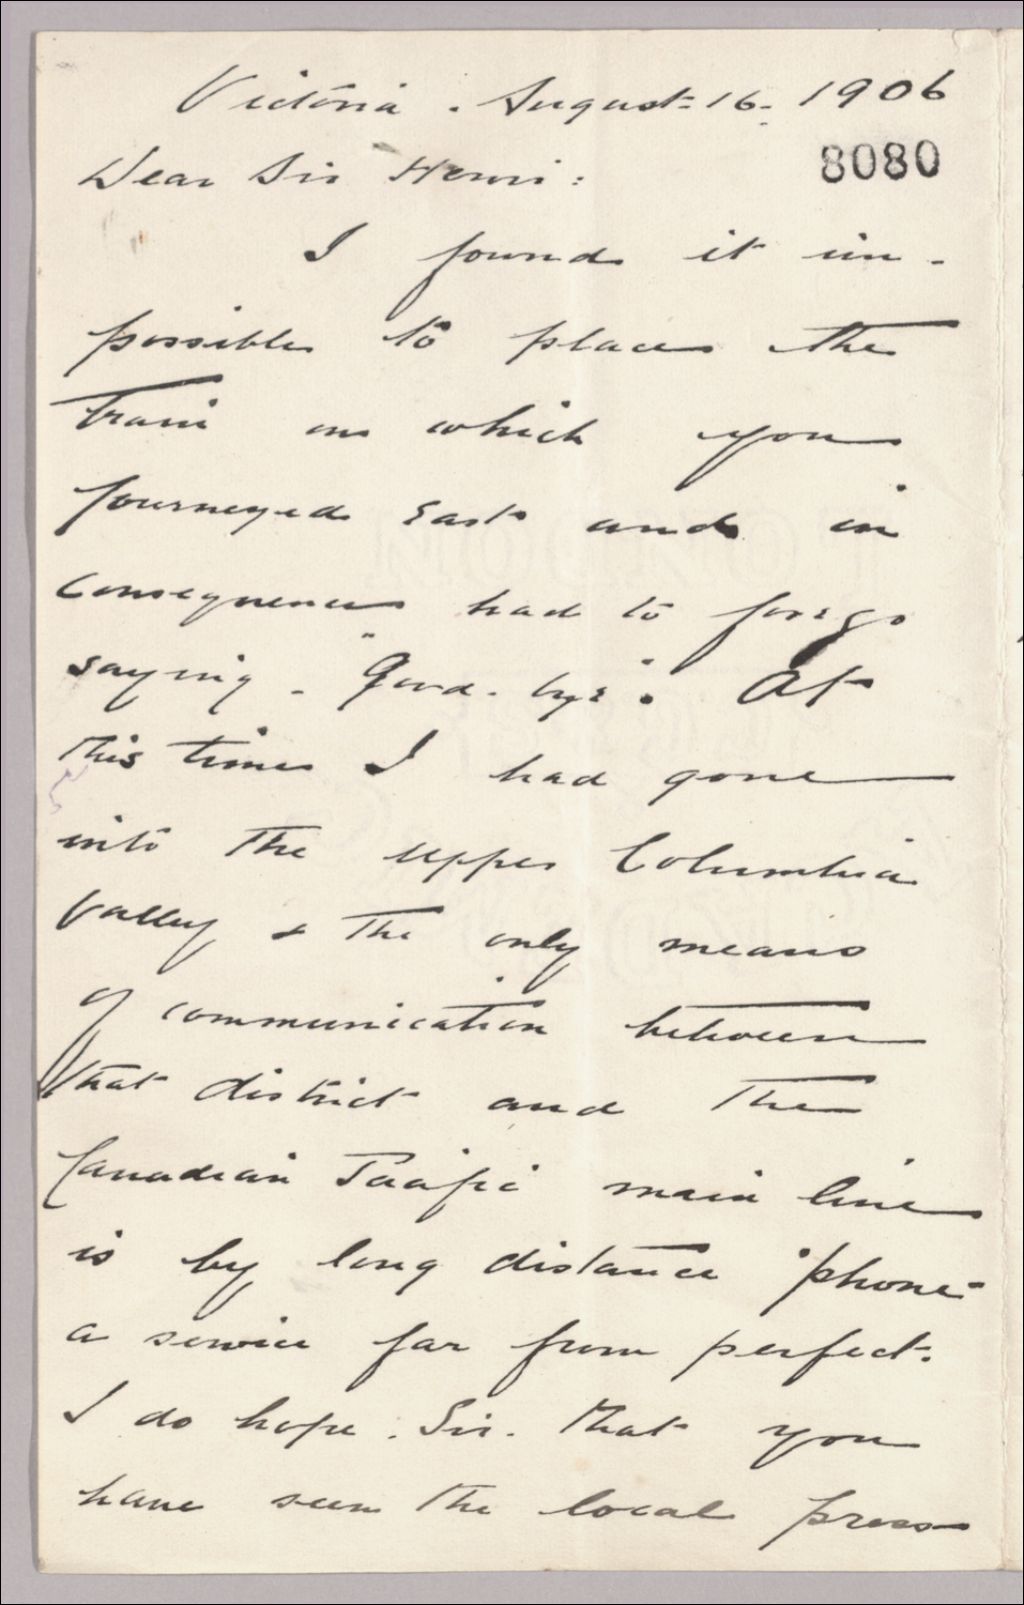 Victoria. August. 16. 1906
8080
Dear Sir Henri:
I found it im-
possible to place the
train on which you
journeyed East and in
consequence had to forego
saying "Good-bye". At
this time I had gone
into the upper Columbia
Valley & the only means
of communication between
that district and the
Canadian Pacific main line
is by long distance 'phone-
a service far from perfect.
I do hope. Sir. that you
have seen the local press